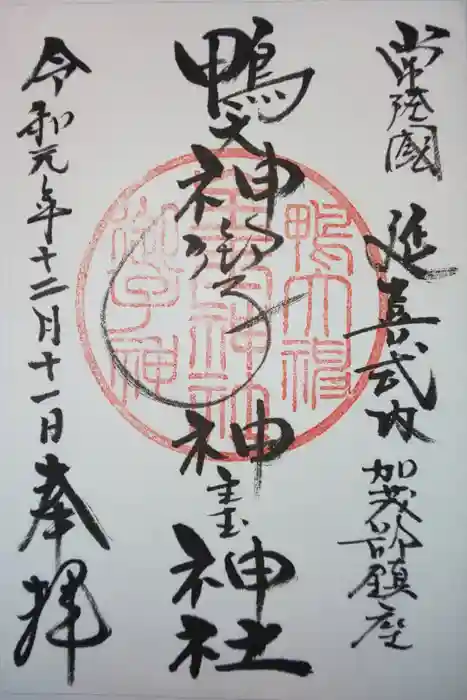 常陸國 延喜式内 加茂部鎮座
鴨大神御子神主玉神社
鴨大神
主玉神社
御子神
令和元年十二月十一日 奉拝